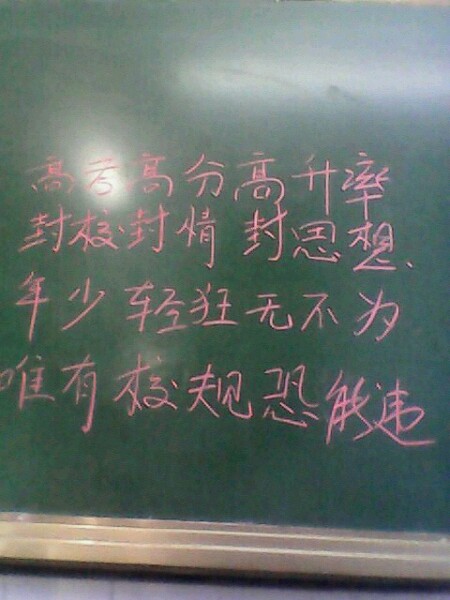 高考高分高升率
封校封情封思想.
年少轻狂无不为
唯有校规恐能违